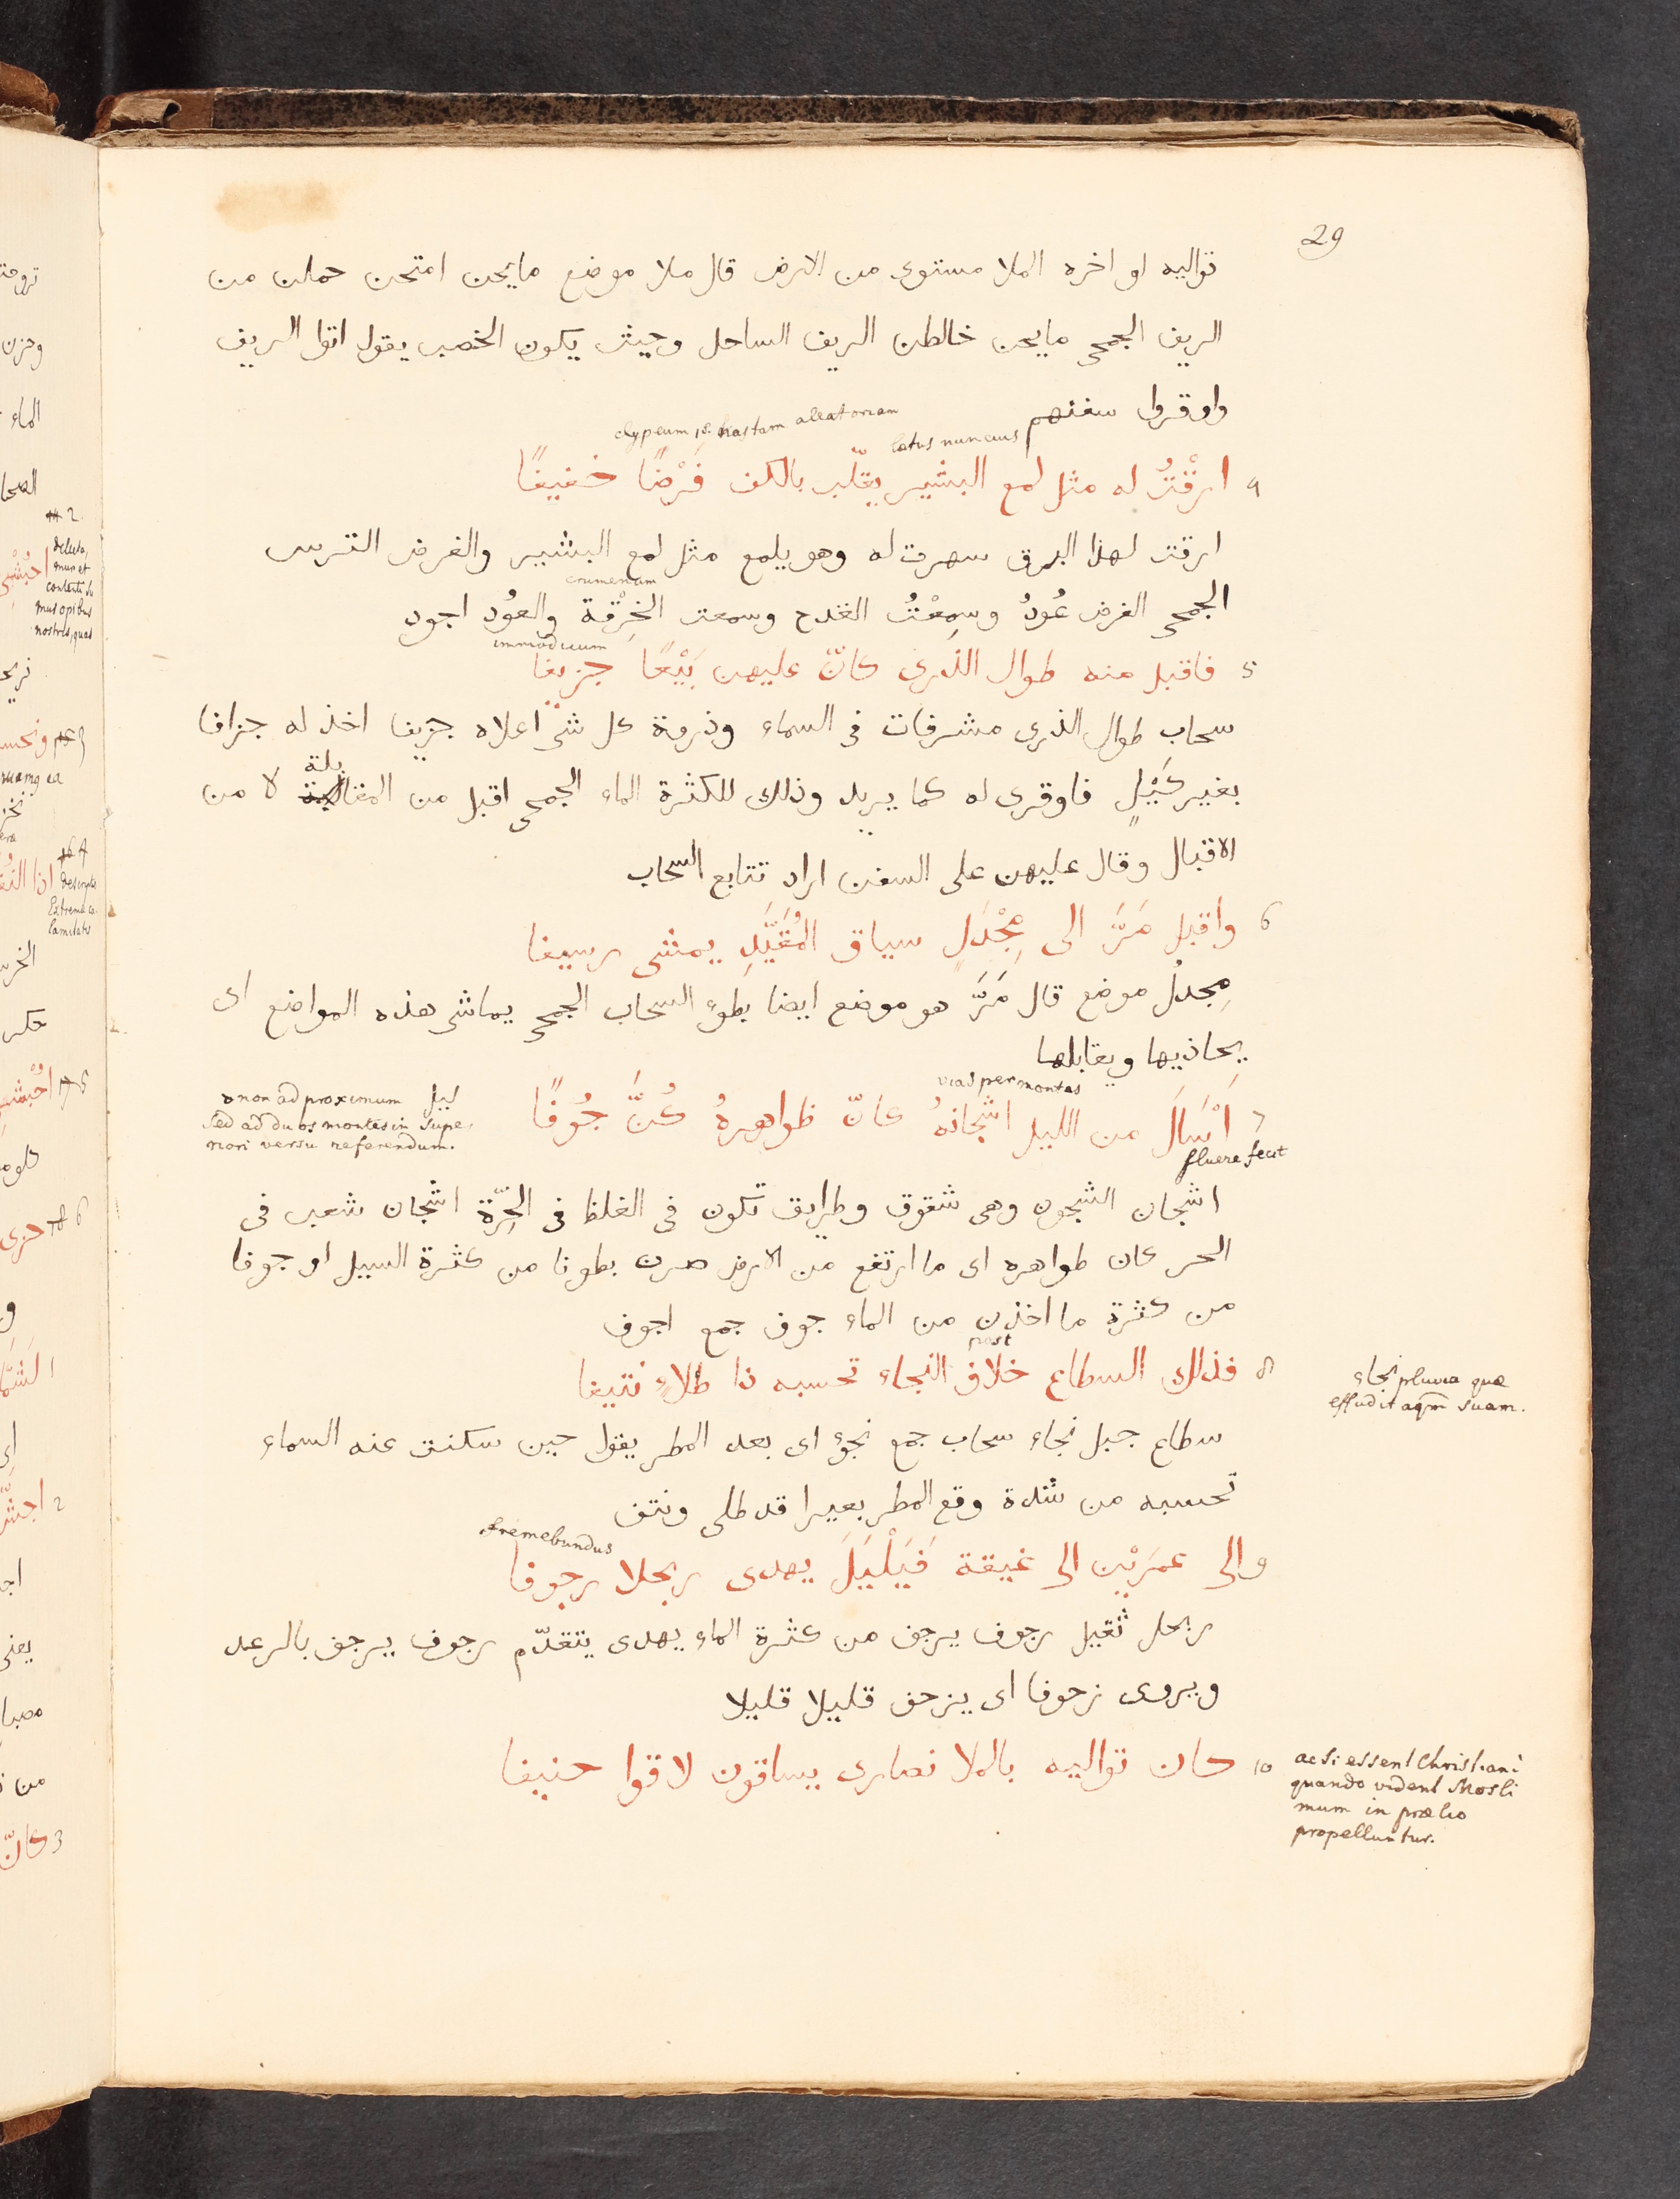 29
تواليه او اخره الملا مستوى من الارض قال ملا موضع مايحن امتحن حملن من
الريف الجمحى مايحن خالطن الريف الساحل وحيث يكون الخصب يقول اتوا الريف
واوقروا سفنهم
clypeum hastam aleatoriam
latus nuncius
ارقْتُ له مثل لمع البشير يقلّب بالكف فَرْضًا خفيفًا
ارقت لهذا البرق سهرت له وهو يلمع مثل لمع البشير والفرض الترس
crumenam
الجمحى الفرض عُودُ وسمِعْتُ القدح وسمعت الخِرْقة والعوُد اجود
immodicum
5 فاقبل منه طوال الذرى كانّ عليهن بَيْعًا جزيفا
سحاب طوال الذرى مشرفات فى السماء وذروة كل شى اعلاه جزيفا اخذ له جزافا
بغير كَيْلٍ فاوقرى له كما يريد وذلك للكثرة الماء الجمحى اقبل من المقابلة لا من
الاقبال وقال عليهن على السفن اراد تتابع السحاب
6 واقبل مَرَّ الى مِجْدَلٍ سياق المُقَيَّدِ يمشى رسيفا
مِجدلُ موضع قال مَرَّ هو موضع ايضا بطوء السحاب الجمحى يماشى هذه المواضع اى
يحاذيها ويقابلها
vias per montes
7 اَسَالَ من الليل اشجانهُ كانّ ظواهرهُ كُنَّ جُوفًا
fluere fecit
ليل non ad proximum
sed ad duos montes in supe-
riori versu referendum.
اشجان الشجون وهى شقوق وطرايق تكون فى الغلظ فى الحِرّة اشجان شعب فى
الحر كان طواهره اى ما ارتفع من الارض صرن بطونا من كثرة السيل او جوفا
من كثرة ما اخذن من الماء جوف جمع اجوف
post
8 فذلك السطاع خلاف النجاء تحسبه ذا طلاءٍ نتيفا
نجاء pluvia quae
effudit aqm suam.
سطاع جبل نجاء سحاب جمع نجؤ اى بعد المطر يقول حين سكنت عنه السماء
تحسبه من شدة وقع المطر بعيرا قد طلى ونتف
fremebundus
9 والى عمرَيْن الى غيقة فَيَلْيَلَ يهدى ربحلا رجوفا
ربحل ثقيل رجوف يرجف من كثرة الماء يهدى يتقدّم رجوف يرجف بالرعد
ويروى زحوفا اى يزحف قليلا قليلا
10 كان تواليه بالملا نصارى يساقون لاقوا حنيفا
ac si essent Christiani
quando vident Mosli
mum in prælio
propelluntur.